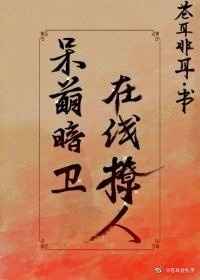 苍耳非耳·书
在线撩人
呆萌暗卫